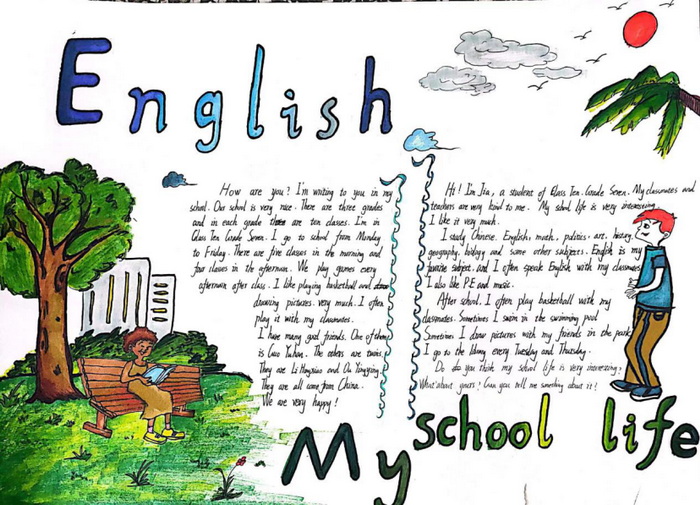 English
How are you? I'm writing to you in my
school. Our school is very nice. There are three grades
and in each grade there are ten classes. I'm in
Class Ten Grade Seven. I go to school from Monday
to Friday. There are five classes in the morning and
four classes in the afternoon. We play games every
afternoon after class. I like playing basketball and
drawing pictures very much. I often
play it with my classmates.
I have many good friends. One of them
is Luo Yuhan. The others are twins.
They are Li Hongxiao and Ou Yingying.
They are all come from China.
We are very happy!
Hi! I'm Jia, a student of Class Ten. Grade Seven. My classmates and
teachers are very kind to me. My school life is very interesting.
I like it very much.
I study Chinese. English, math, politics. art. history,
geography, biology and some other subjects. English is my
favorite subject. and I often speak English with my classmates
I also like P.E and music.
After school. I often play basketball with my
classmates. Sometimes I swim in the swimming pool
Sometimes I draw pictures with my friends in the park
I go to the library every Tuesday and Thursday.
Do do you think my school life is very interesting?
What about yours? Can you tell me something about it?
My school life